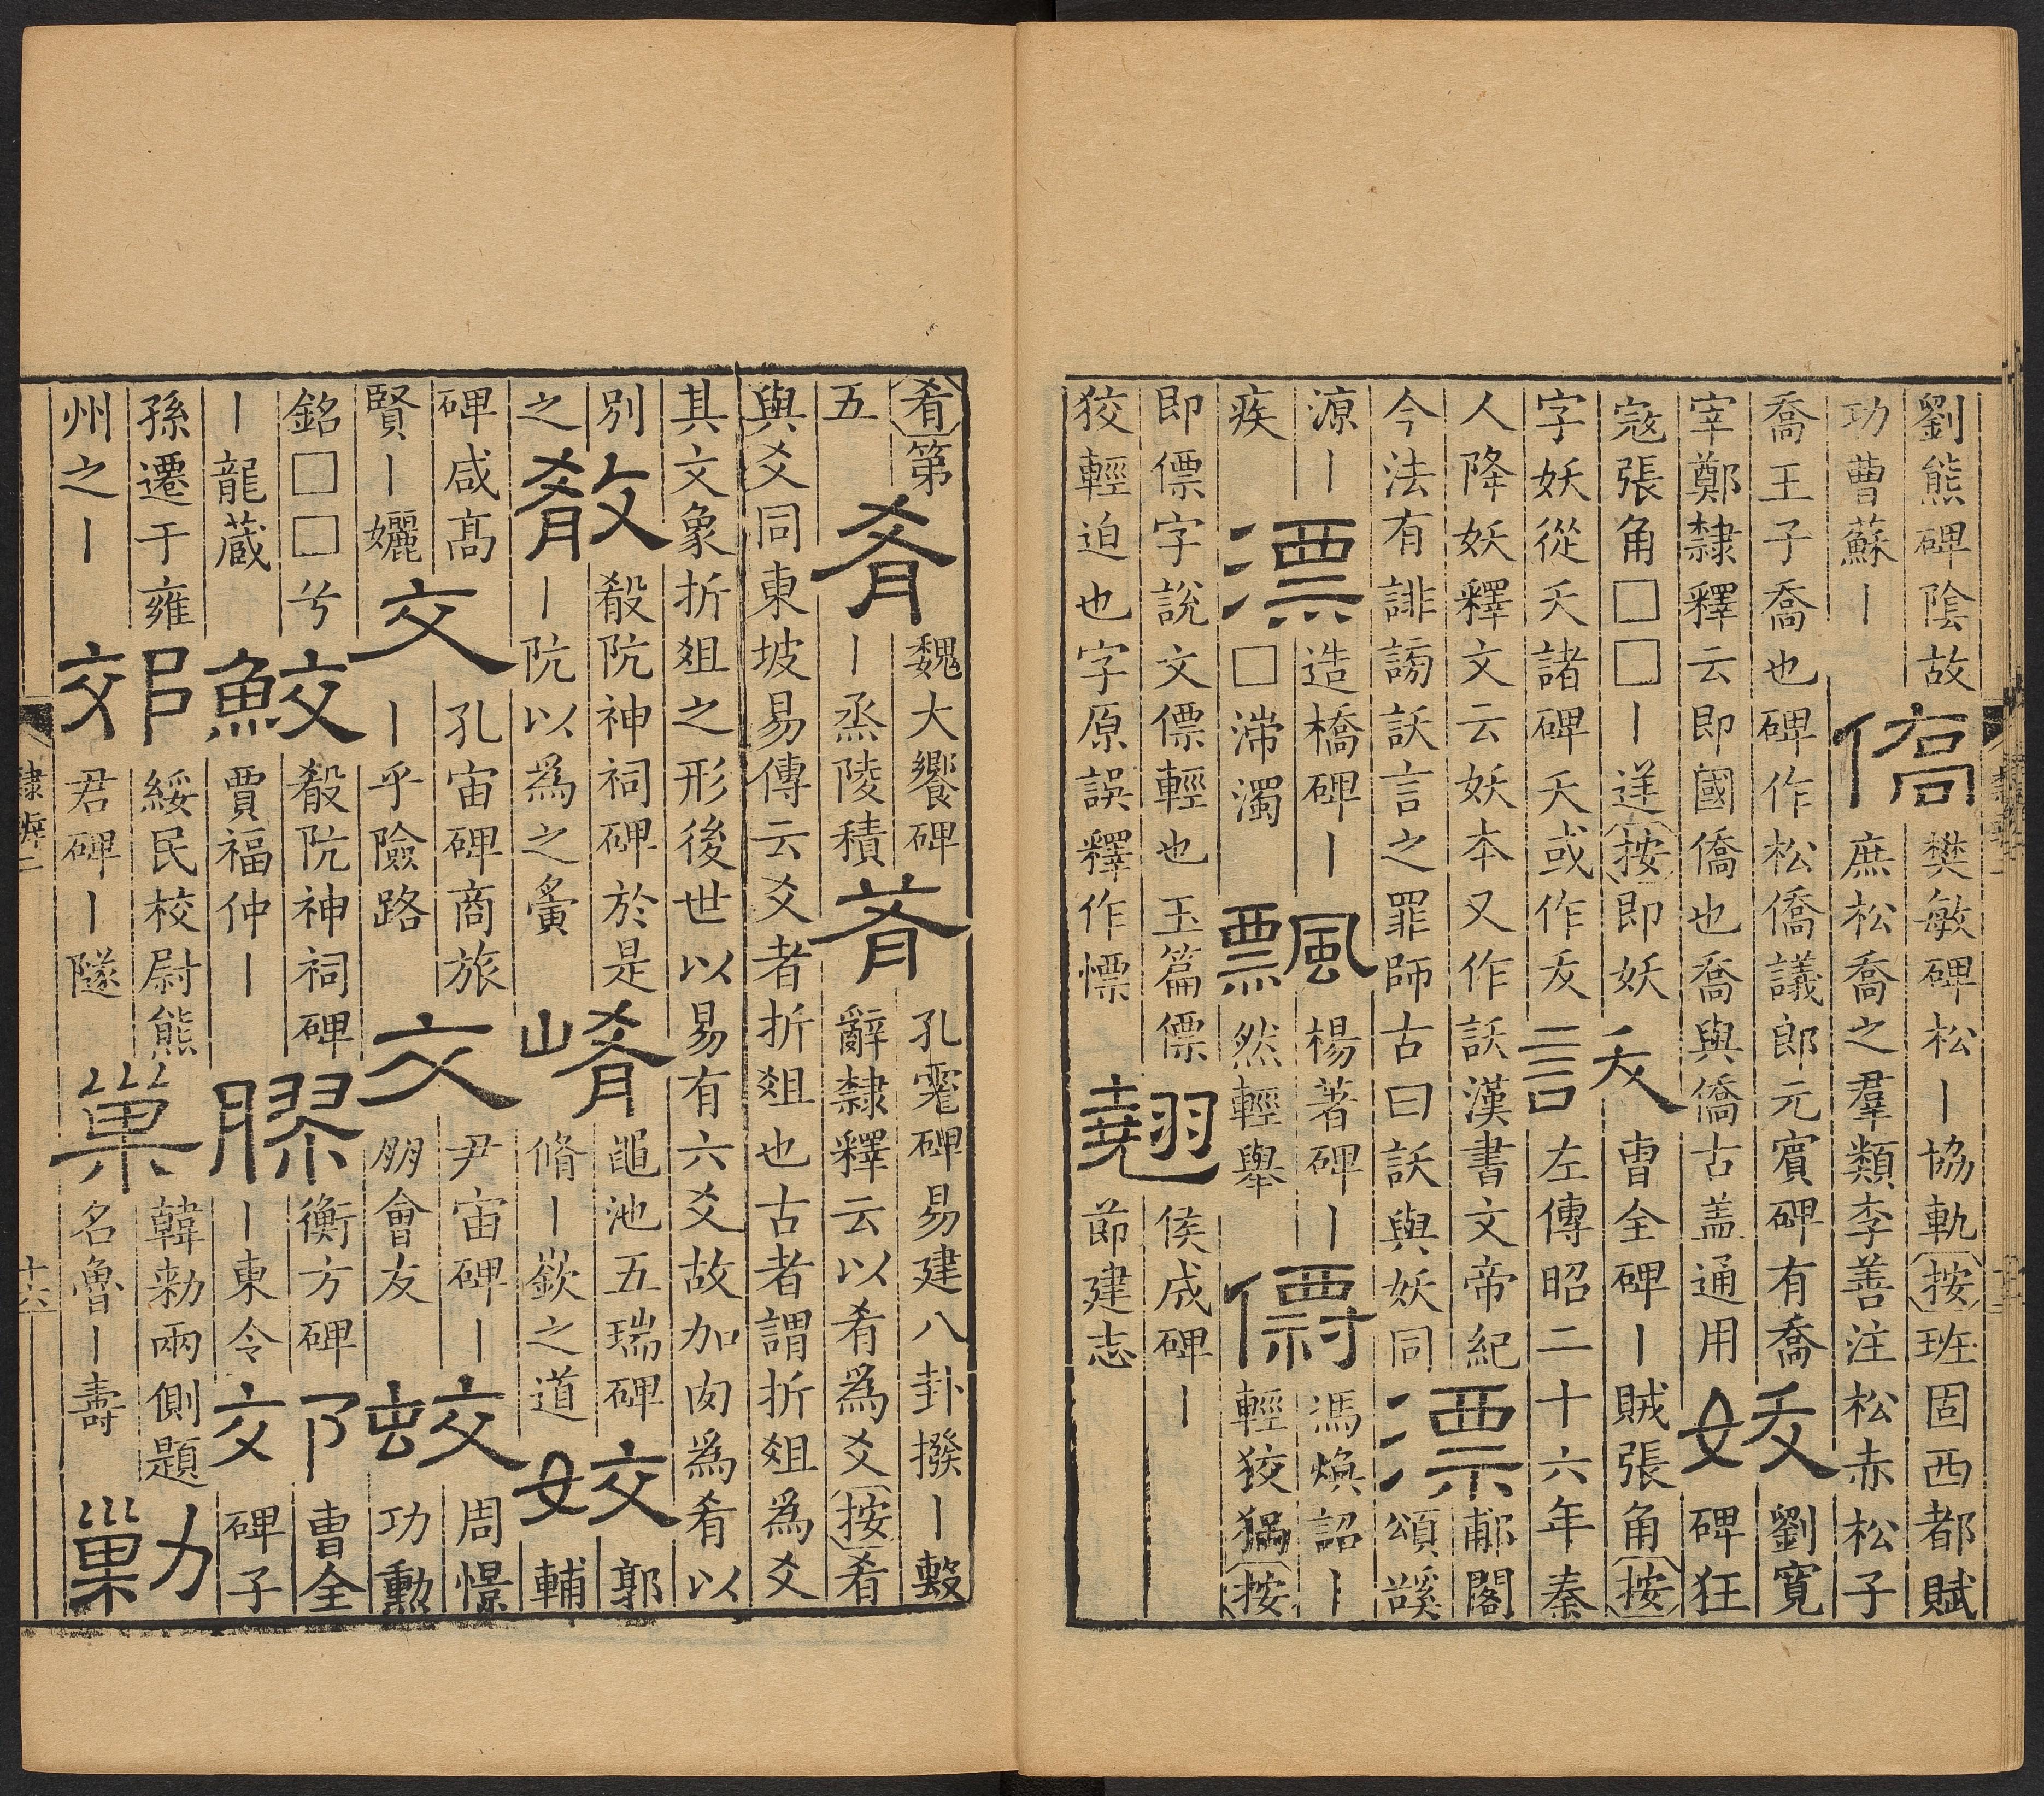 劉熊碑陰故
功曹蘇〡
僑
樊敏碑松〡協軌按班固西都賦
庶松喬之羣類李善注松赤松子
喬王子喬也碑作松僑議郎元賓碑有喬
宰鄭隸釋云即國僑也喬與僑古盖通用
妖
劉寬
碑狂
寇張角□□〡逆按即妖
字妖從夭諸碑夭或作犮
訞
曹全碑〡賊張角按
左傳昭二十六年秦
人降妖釋文云妖本又作訞漢書文帝紀
今法有誹謗訞言之罪師古曰訞與妖同
漂
郙閣
頌谿
源〡
疾
漂
造橋碑〡
□滯濁
飄
楊著碑〡
然輕舉
僄
馮煥詔〡
輕狡猾按
即僄字說文僄輕也玉篇僄
狡輕迫也字原誤釋作慓
翹
侯成碑〡
節建志
肴第
五
肴
魏大饗碑
〡烝陵積
肴
孔碑易建八卦撥〡毄
辭隸釋云以肴爲爻按肴
與爻同東坡易傳云爻者折俎也古者謂折俎爲爻
其文象折俎之形後世以易有六爻故加肉爲肴以
別
之
殽
殽阬神祠碑於是
〡阬以爲之
崤
黽池五瑞碑
脩〡嶔之道
姣
郭
輔
碑咸高
賢〡孋
交
孔宙碑商旅
〡乎險路
交
尹宙碑〡
朋會友
蛟
周憬
功勳
銘□□兮
〡龍蔵
鮫
殽阬神祠碑
賈福仲〡
膠
衡方碑
〡東令
郊
曹全
碑子
孫遷于雍
州之〡
郊
綏民校尉熊
君碑〡隧
巢
韓勑兩側題
名魯〡壽
勦
隸辨二
十六